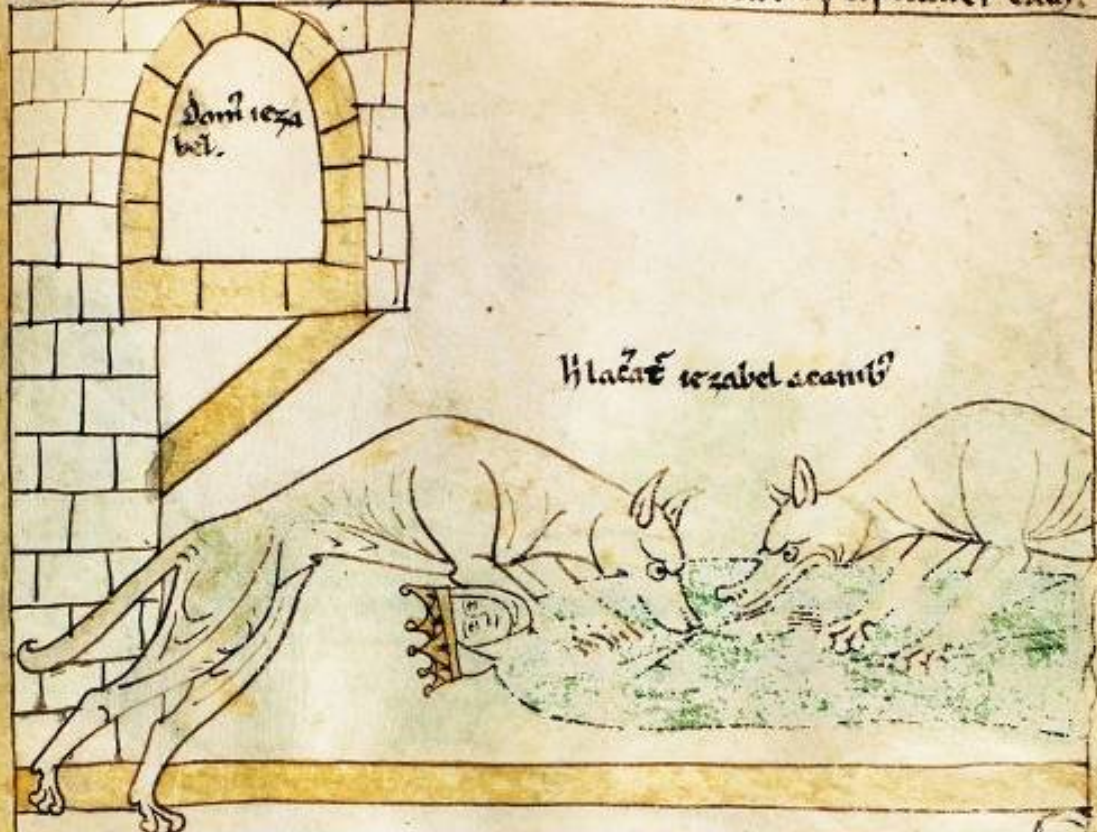 Dom' ieza
bel.
h' lac̄at' iezabel a canib'